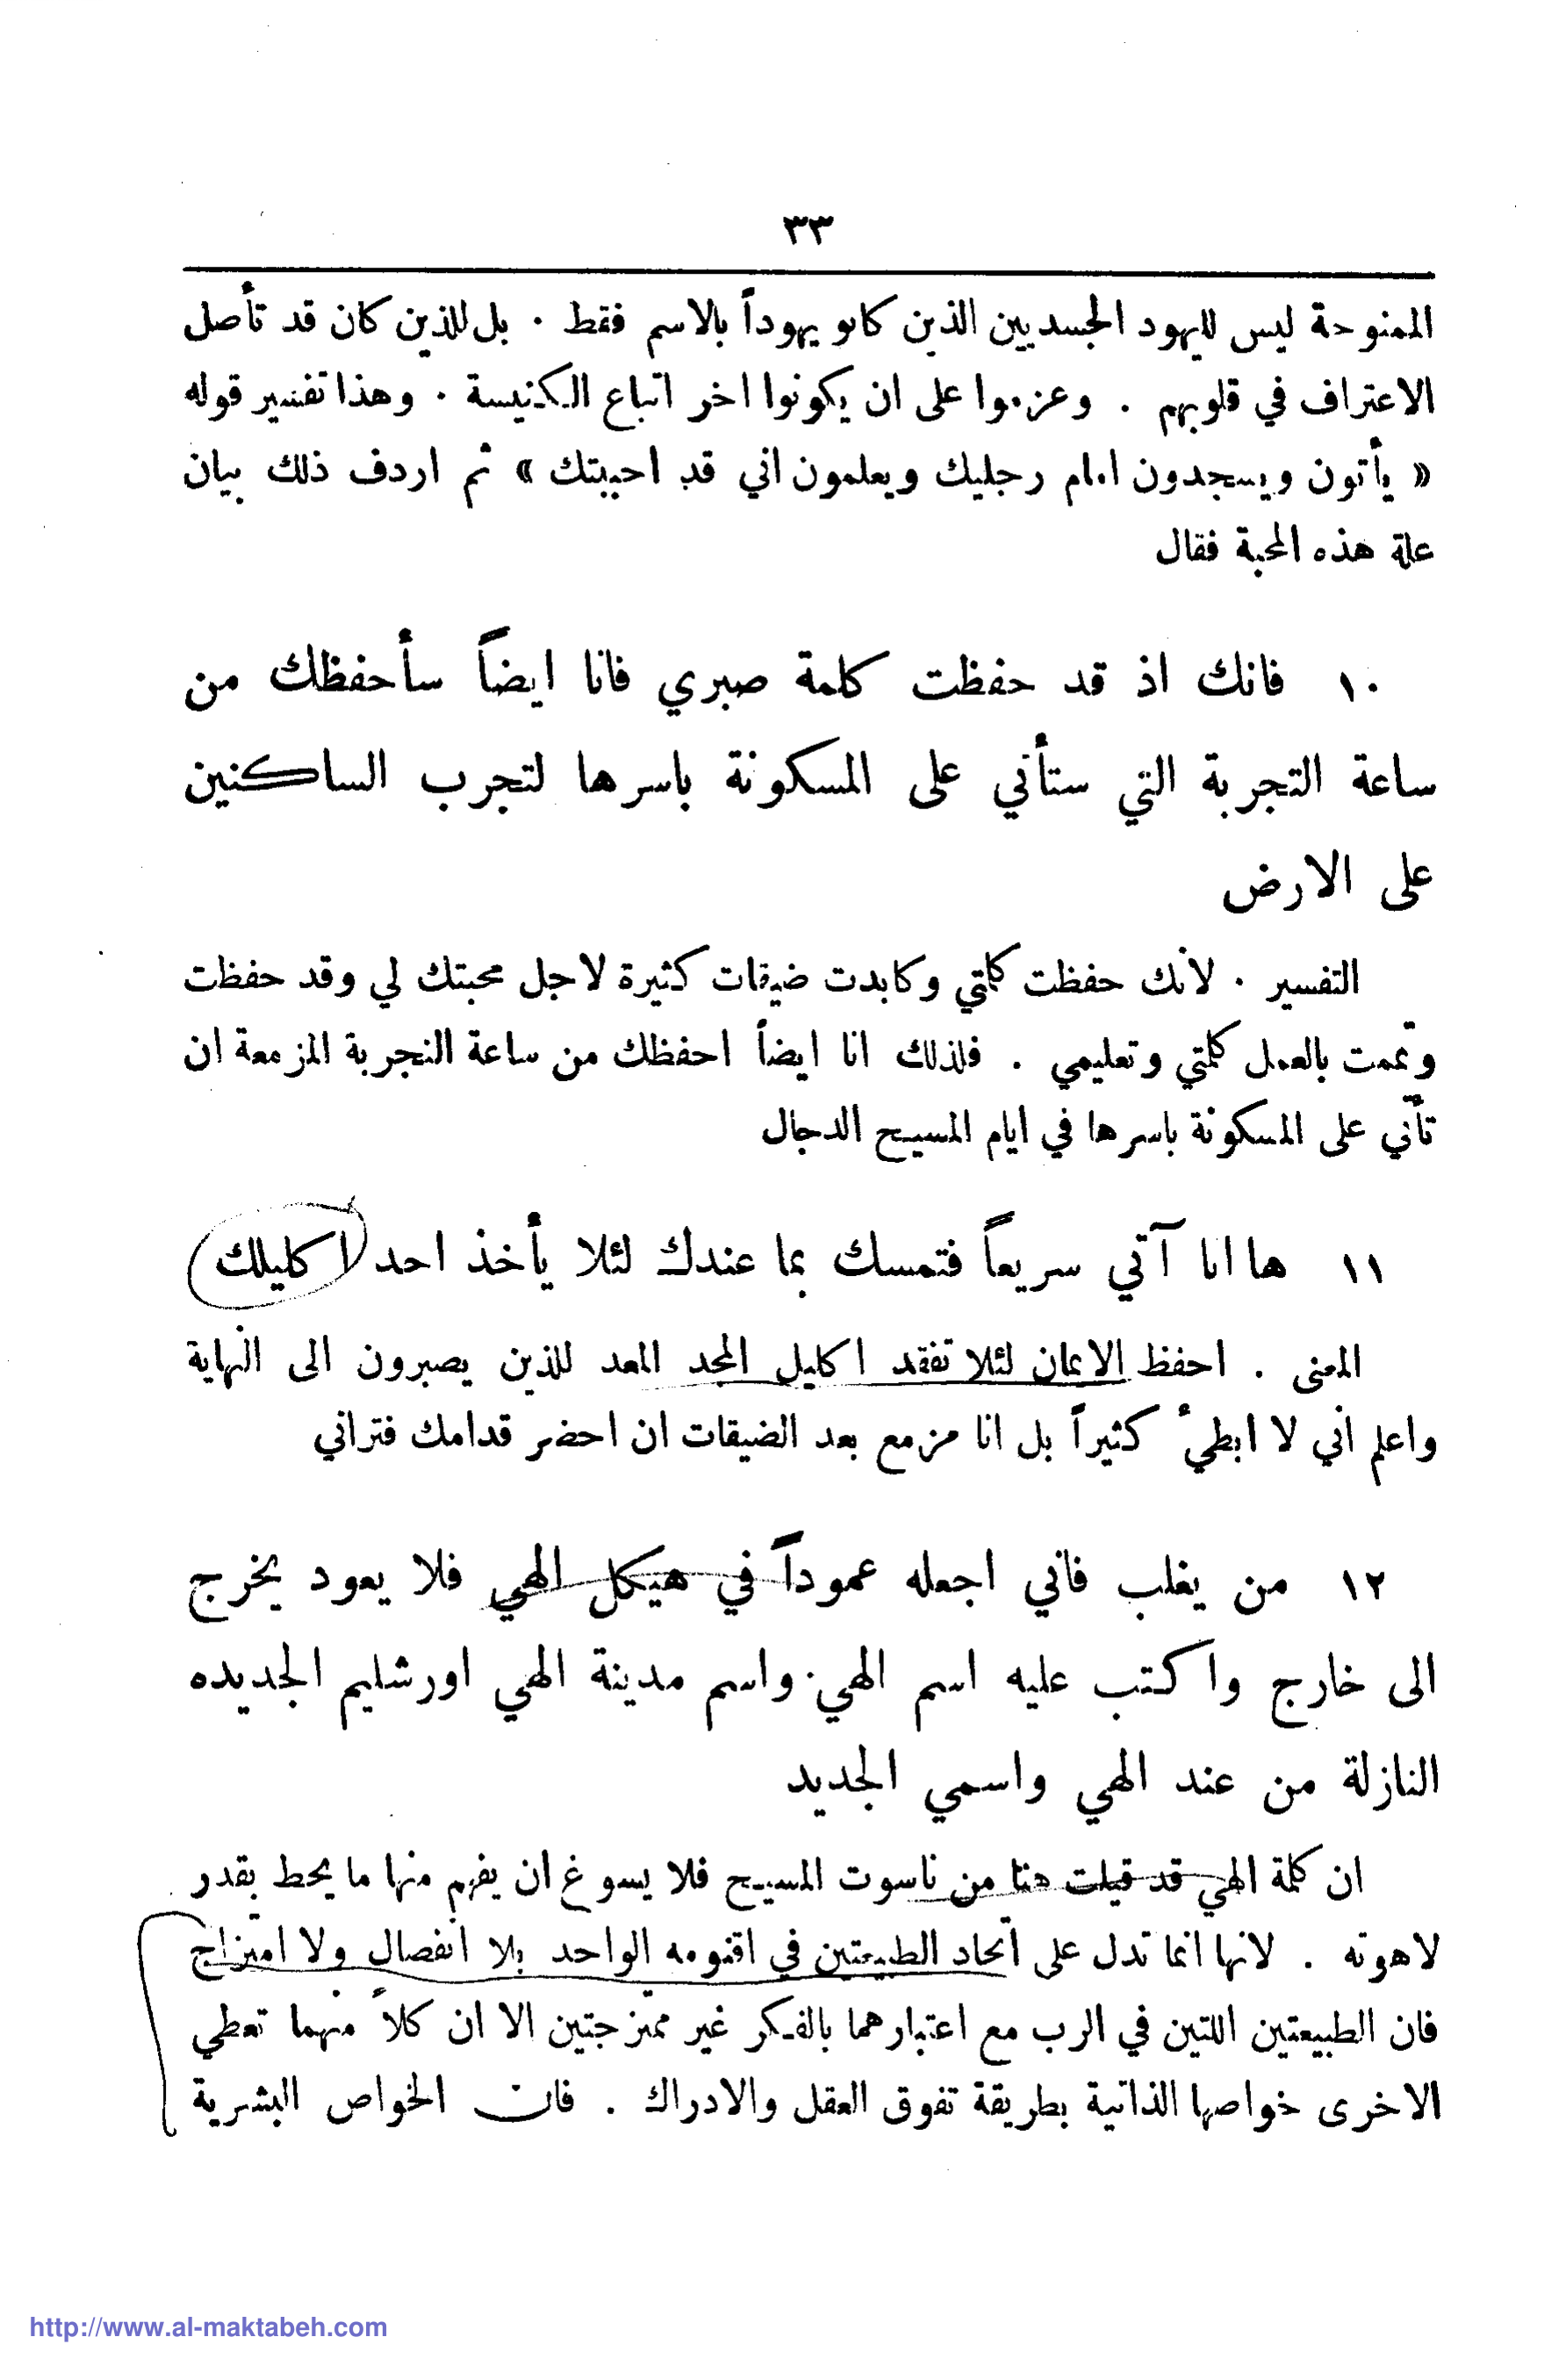 ٣٣
الممنوحة ليس لليهود الجسديين الذين كانو يهوداً بالاسم فقط . بل للذين كان قد تأصل
الاعتراف في قلوبهم . وعزموا على ان يكونوا اخر اتباع الكنيسة . وهذا تفسير قوله
« يأتون ويسجدون امام رجليك ويعلمون اني قد احببتك » ثم اردف ذلك ببيان
علة هذه المحبة فقال
١٠ فانك اذ قد حفظت كلمة صبري فانا ايضاً سأحفظك من
ساعة التجربة التي ستأتي على المسكونة باسرها لتجرب الساكنين
على الارض
التفسير . لانك حفظت كلمتي وكابدت ضيقات كثيرة لاجل محبتك لي وقد حفظت
وتممت بالعمل كلمتي وتعليمي . فلذلك انا ايضاً احفظك من ساعة التجربة المزمعة ان
تأتي على المسكونة باسرها في ايام المسيح الدجال
١١ ها انا آتي سريعاً فتمسك بما عندك لئلا يأخذ احد اكليلك
المعنى . احفظ الايمان لئلا تفقد اكليل المجد المعد للذين يصبرون الى النهاية
واعلم اني لا ابطيء كثيراً بل انا مزمع بعد الضيقات ان احضر قدامك فتراني
١٢ من يغلب فاني اجعله عموداً في هيكل الهي فلا يعود يخرج
الى خارج واكتب عليه اسم الهي . واسم مدينة الهي اورشليم الجديده
النازلة من عند الهي واسمي الجديد
ان كلمة الهي قد قيلت هنا من ناسوت المسيح فلا يسوغ ان يفهم منها ما يحط بقدر
لاهوته . لانها انما تدل على اتحاد الطبيعتين في اقنومه الواحد بلا انفصال ولا امتزاج
فان الطبيعتين اللتين في الرب مع اعتبارهما بالفكر غير ممتزجتين الا ان كلاً منهما تعطي
الاخرى خواصها الذاتية بطريقة تفوق العقل والادراك . فان الخواص البشرية
http://www.al-maktabeh.com